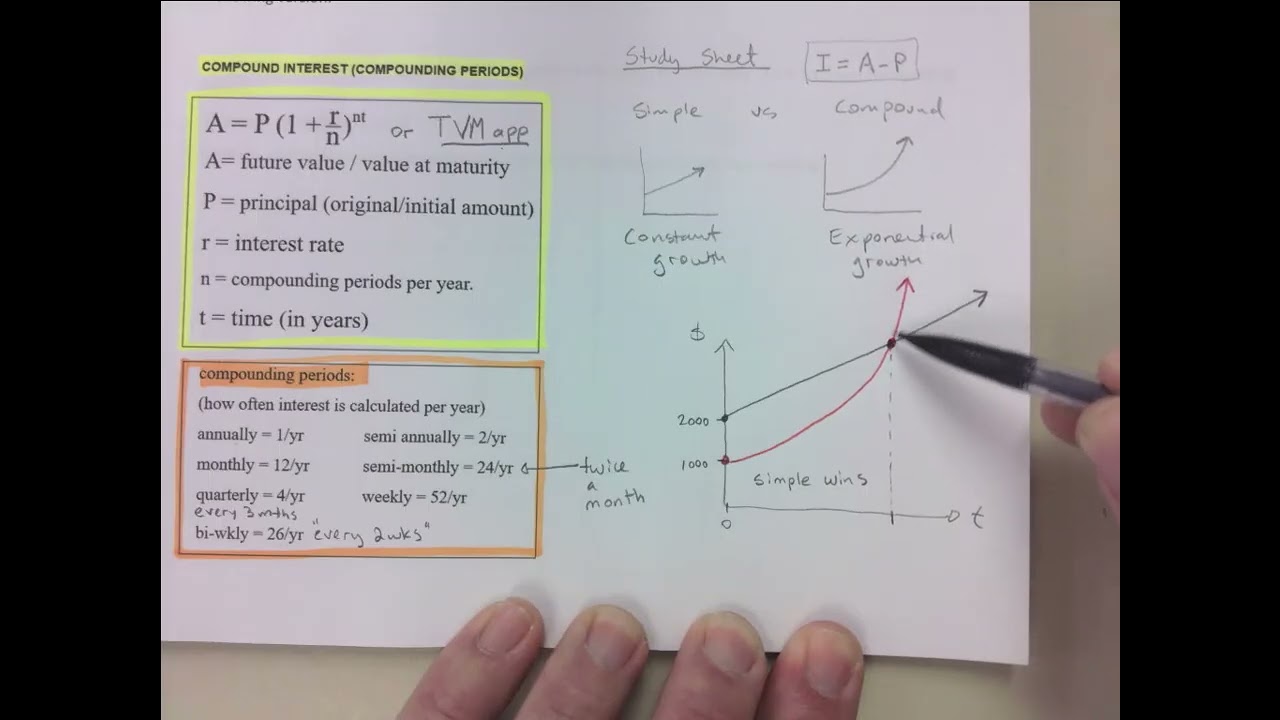 COMPOUND INTEREST (COMPOUNDING PERIODS)
A = P (1 + r/n)^nt or TVM app
A= future value / value at maturity
P = principal (original/initial amount)
r = interest rate
n = compounding periods per year.
t = time (in years)
compounding periods:
(how often interest is calculated per year)
annually = 1/yr semi annually = 2/yr
monthly = 12/yr semi-monthly = 24/yr
quarterly = 4/yr weekly = 52/yr
every 3 mths
bi-wkly = 26/yr "every 2wks"
twice
a
month
Study Sheet I = A - P
Simple vs Compound
Constant
growth
Exponential
growth
$
2000
1000
simple wins
0
t